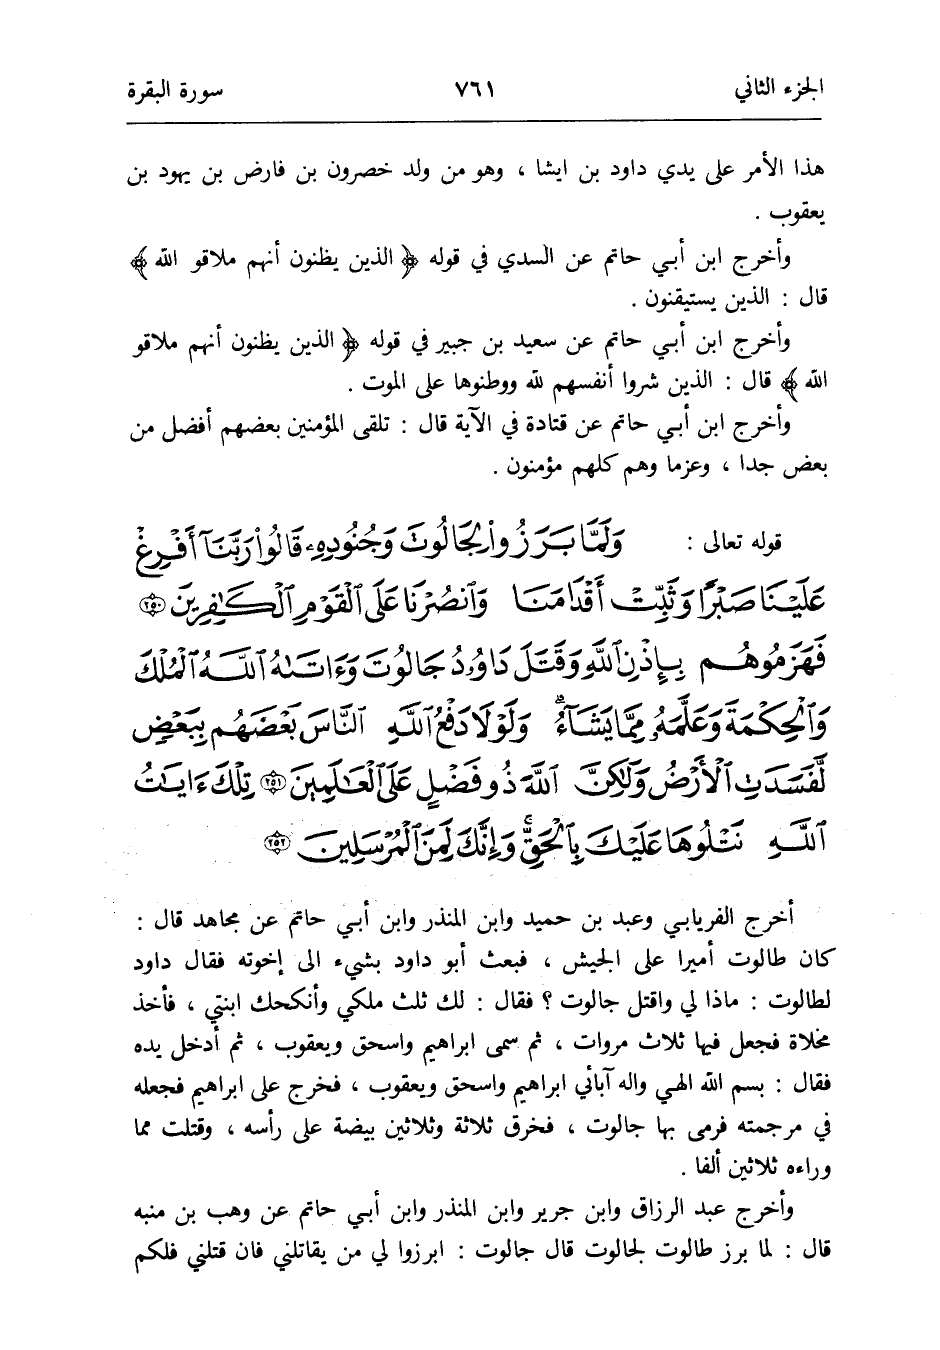 الجزء الثاني ٧٦١ سورة البقرة
هذا الأمر على يدي داود بن ايشا ، وهو من ولد خصرون بن فارض بن يهود بن
يعقوب .
وأخرج ابن أبي حاتم عن السدي في قوله ﴿ الذين يظنون أنهم ملاقو الله ﴾
قال : الذين يستيقنون .
وأخرج ابن أبي حاتم عن سعيد بن جبير في قوله ﴿ الذين يظنون أنهم ملاقو
الله ﴾ قال : الذين شروا أنفسهم لله ووطنوها على الموت .
وأخرج ابن أبي حاتم عن قتادة في الآية قال : تلقى المؤمنين بعضهم أفضل من
بعض جدا ، وعزما وهم كلهم مؤمنون .
قوله تعالى : وَلَمَّا بَرَزُواْ لِجَالُوتَ وَجُنُودِهِۦ قَالُواْ رَبَّنَآ أَفْرِغْ
عَلَيْنَا صَبْرًا وَثَبِّتْ أَقْدَامَنَا وَٱنصُرْنَا عَلَى ٱلْقَوْمِ ٱلْكَٰفِرِينَ ٢٥٠
فَهَزَمُوهُم بِإِذْنِ ٱللَّهِ وَقَتَلَ دَاوُۥدُ جَالُوتَ وَءَاتَىٰهُ ٱللَّهُ ٱلْمُلْكَ
وَٱلْحِكْمَةَ وَعَلَّمَهُۥ مِمَّا يَشَآءُ ۗ وَلَوْلَا دَفْعُ ٱللَّهِ ٱلنَّاسَ بَعْضَهُم بِبَعْضٍ
لَّفَسَدَتِ ٱلْأَرْضُ وَلَٰكِنَّ ٱللَّهَ ذُو فَضْلٍ عَلَى ٱلْعَٰلَمِينَ ٢٥١ تِلْكَ ءَايَٰتُ
ٱللَّهِ نَتْلُوهَا عَلَيْكَ بِٱلْحَقِّ ۚ وَإِنَّكَ لَمِنَ ٱلْمُرْسَلِينَ ٢٥٢
أخرج الفريابي وعبد بن حميد وابن المنذر وابن أبي حاتم عن مجاهد قال :
كان طالوت أميرا على الجيش ، فبعث أبو داود بشيء الى إخوته فقال داود
لطالوت : ماذا لي واقتل جالوت ؟ فقال : لك ثلث ملكي وأنكحك ابنتي ، فأخذ
مخلاة فجعل فيها ثلاث مروات ، ثم سمى ابراهيم واسحق ويعقوب ، ثم أدخل يده
فقال : بسم الله الهي واله آبائي ابراهيم واسحق ويعقوب ، فخرج على ابراهيم فجعله
في مرجمته فرمى بها جالوت ، فخرق ثلاثة وثلاثين بيضة على رأسه ، وقتلت مما
وراءه ثلاثين ألفا .
وأخرج عبد الرزاق وابن جرير وابن المنذر وابن أبي حاتم عن وهب بن منبه
قال : لما برز طالوت لجالوت قال جالوت : ابرزوا لي من يقاتلني فان قتلني فلكم